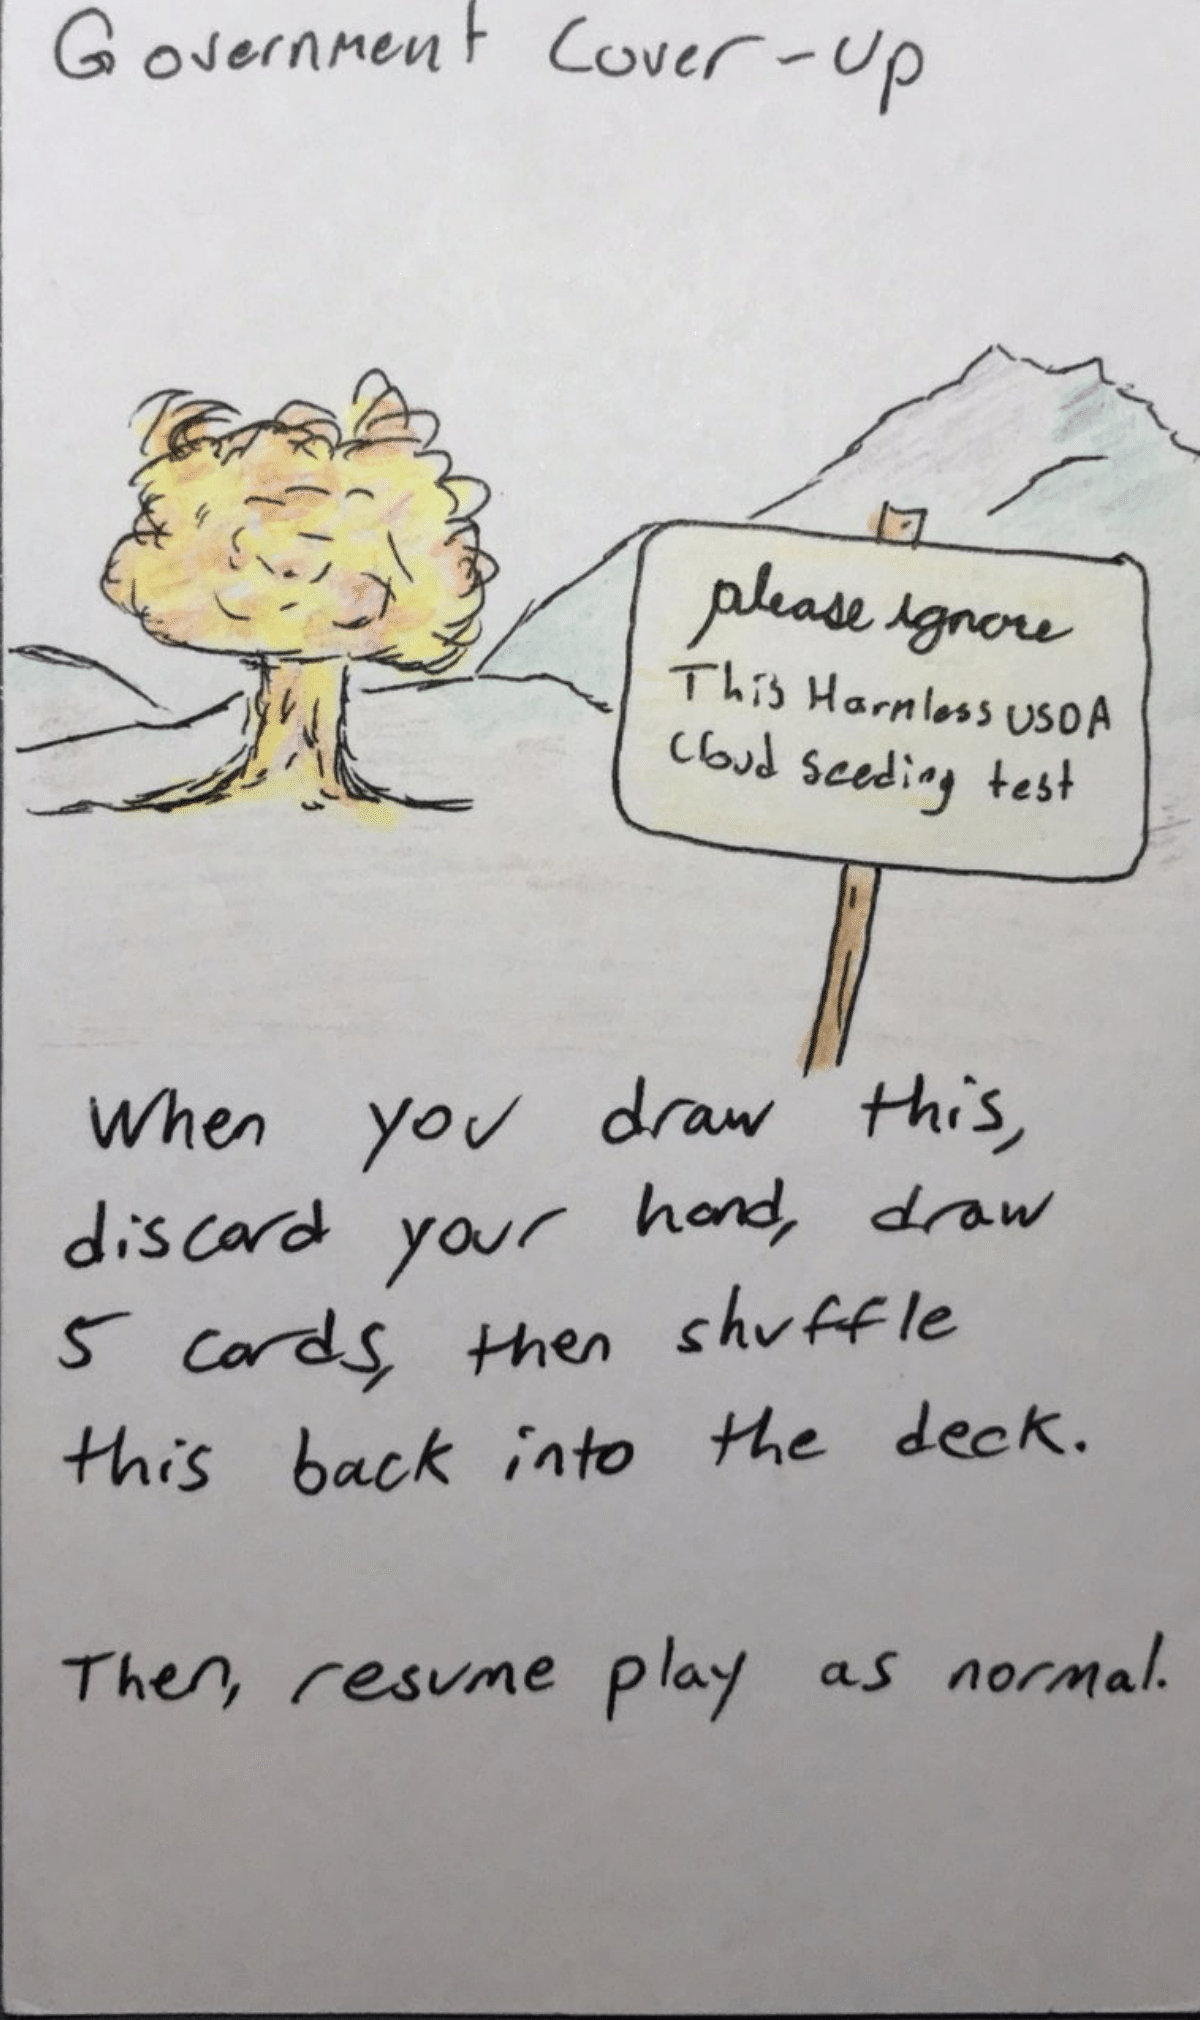 Government Cover-Up
please ignore
This Harmless USDA
Cloud Seeding test
When you draw this,
discard your hand, draw
5 cards, then shuffle
this back into the deck.
Then, resume play as normal.